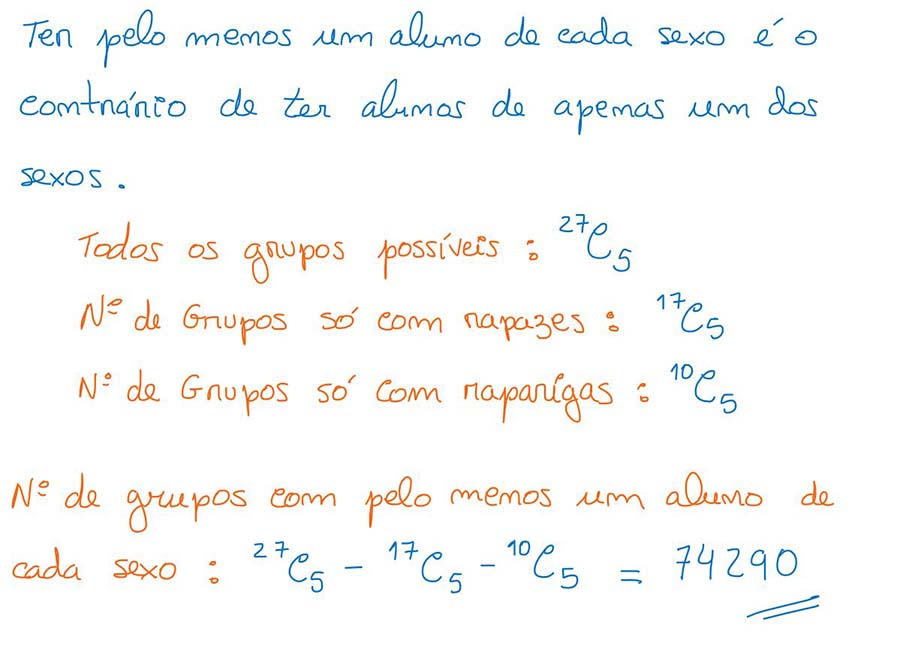 Ter pelo menos um aluno de cada sexo é o
contrário de ter alunos de apenas um dos
sexos.
Todos os grupos possíveis : ²⁷C₅
Nº de Grupos só com rapazes : ¹⁷C₅
Nº de Grupos só com raparigas : ¹⁰C₅
Nº de grupos com pelo menos um aluno de
cada sexo : ²⁷C₅ - ¹⁷C₅ - ¹⁰C₅ = 74290